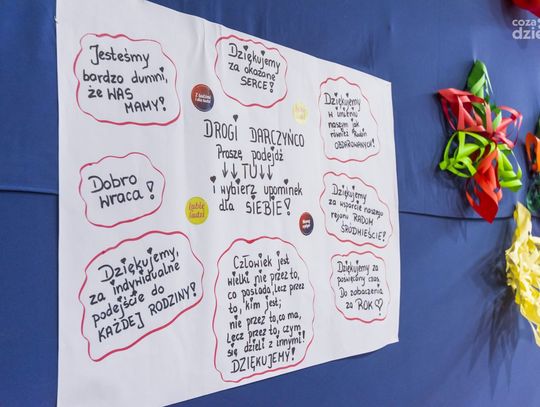 Jesteśmy
bardzo dumni,
że WAS
MAMY!
Dziękujemy
za okazane
SERCE!
Dziękujemy
W imieniu
naszym jak
również
OBDAROWANYCH!
DROGI DARCZYŃCO
Proszę podejdź
TU
i wybierz upominek
dla SIEBIE!
Dobro
wraca!
Dziękujemy
za wsparcie naszego
rejonu RADOM
ŚRÓDMIEŚCIE!
Dziękujemy,
za indywidualne
podejście do
KAŻDEJ RODZINY!
Człowiek jest
wielki nie przez to,
co posiada, lecz przez
to, kim jest;
nie przez to, co ma,
lecz przez to, czym
się dzieli z innymi!
DZIĘKUJEMY!
Dziękujemy za
poświęcony czas.
Do zobaczenia
za ROK
Lubię
ludzi
coza
dzie